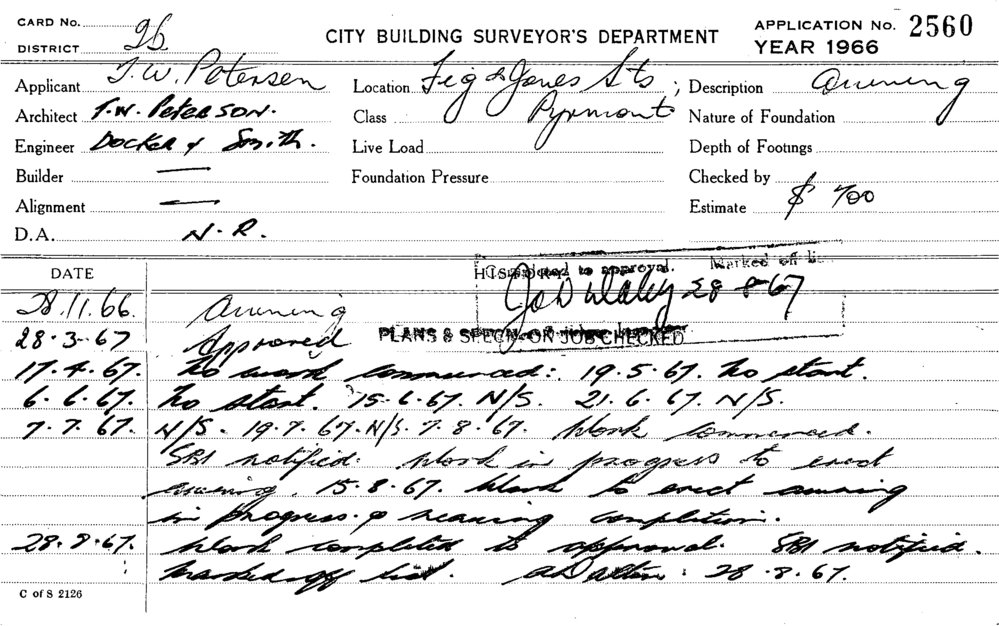 CARD No.
DISTRICT 26
CITY BUILDING SURVEYOR'S DEPARTMENT
APPLICATION No. 2560
YEAR 1966
Applicant T. W. Petersen
Location Fig & Jones Sts ; Pyrmont
Description Awning
Architect T. W. PETERSON.
Class
Nature of Foundation
Engineer Docker & Smith.
Live Load
Depth of Footings
Builder —
Foundation Pressure
Checked by
Alignment —
Estimate $ 700
D.A. N. R.
DATE
HISTORY
Completed to approval. Marked off
28 - 8 - 67
28.11.66. Awning
PLANS & SPECN. ON JOB CHECKED
28.3.67 Approved
17.4.67. No work commenced: 19.5.67. No start.
6.6.67. No start. 15.6.67. N/S. 21.6.67. N/S.
7.7.67. N/S. 19.7.67. N/S. 7.8.67. Work commenced.
SBI notified. Work in progress to erect
awning. 15.8.67. Work to erect awning
in progress & nearing completion.
28.8.67. Work completed to approval. SBI notified.
Marked off list. 28.8.67.
C of S 2126